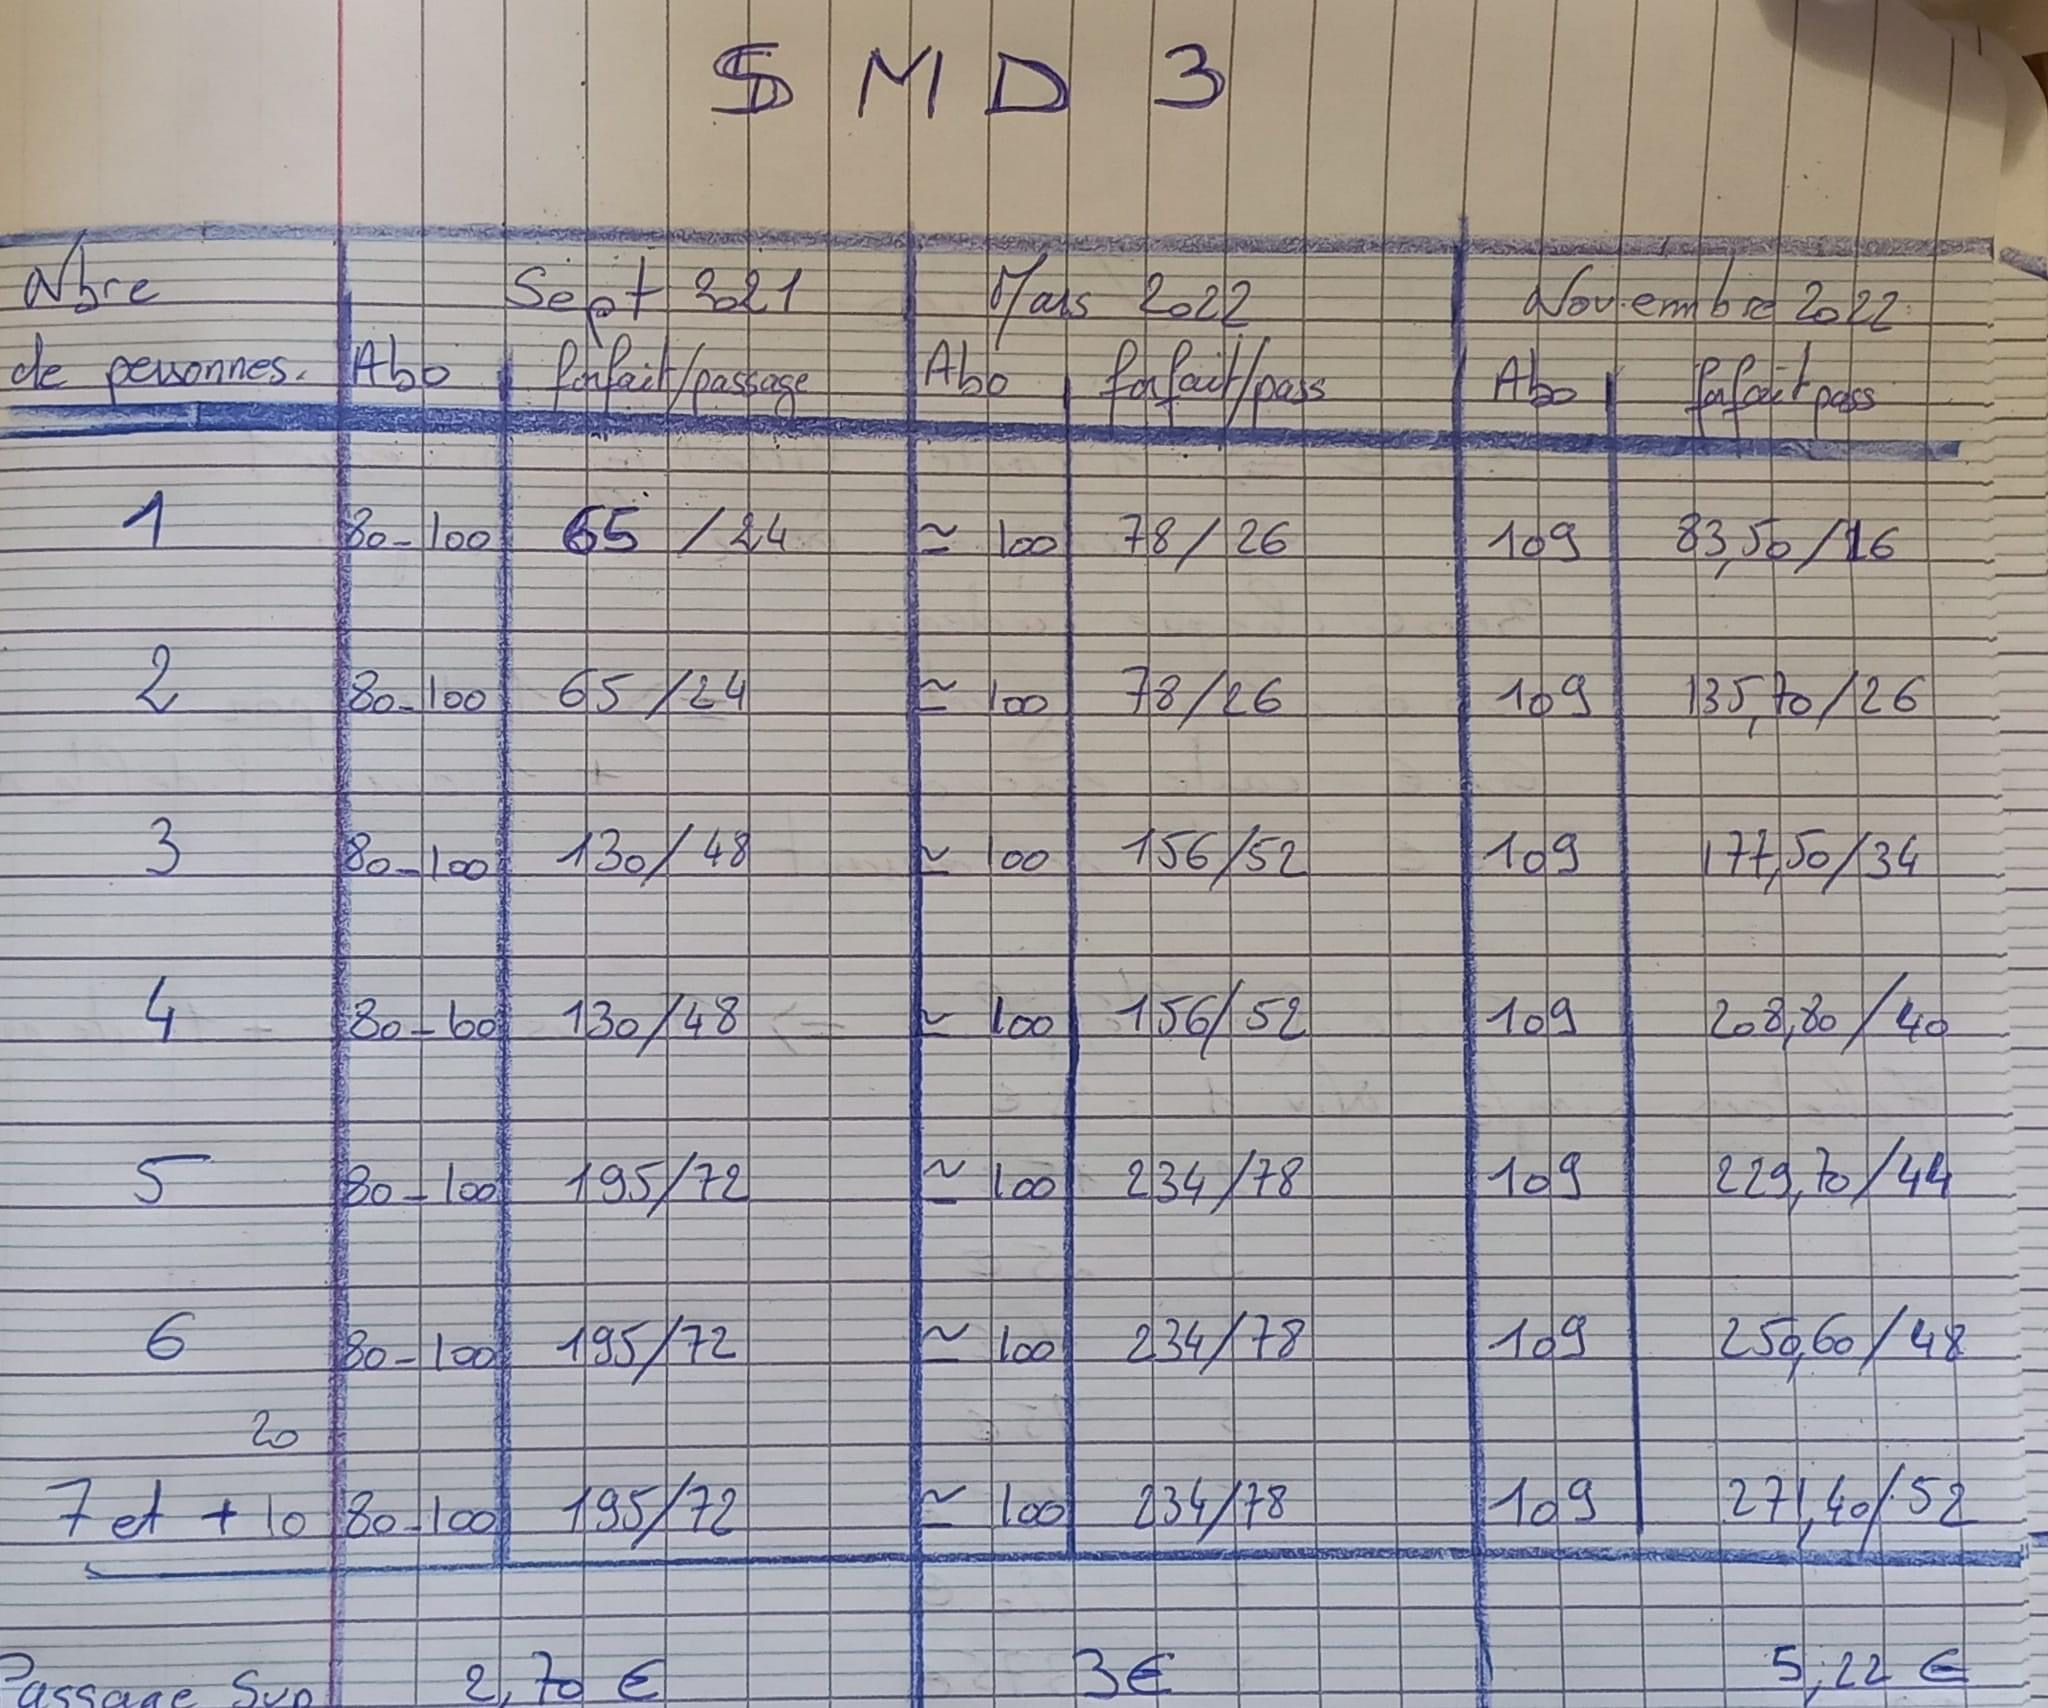 SMD 3
Nbre Sept 2021 Mars 2022 Novembre 2022
de personnes. Abo forfait/passage Abo forfait/pass Abo forfait pass
1 80-100 65/24 ≃ 100 78/26 109 83,50/16
2 80-100 65/24 ≃ 100 78/26 109 135,70/26
3 80-100 130/48 ≃ 100 156/52 109 177,50/34
4 80-100 130/48 ≃ 100 156/52 109 208,80/40
5 80-100 195/72 ≃ 100 234/78 109 229,70/44
6 80-100 195/72 ≃ 100 234/78 109 250,60/48
20
7 et + 10 80-100 195/72 ≃ 100 234/78 109 271,40/52
Passage Sup 2,70 € 3€ 5,22 €